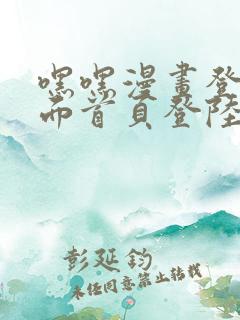 嘿嘿漫畫登
而首頁登陸
彭延鈞
未任同意禁止轉載